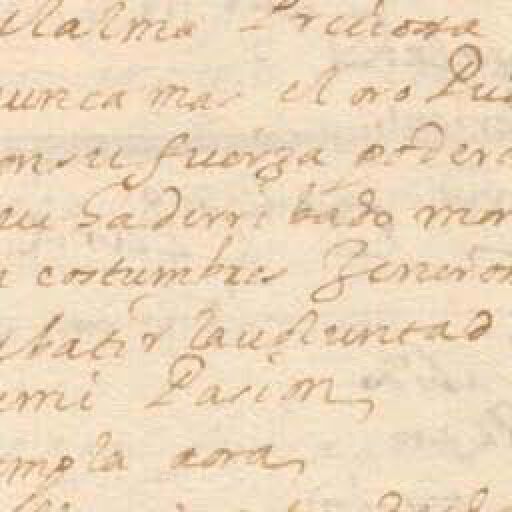 elalma Preciosa
nunca mas el oro Pud
con su fuerza podero
su ha derribado mon
n costumbres Zeneron
abatir la voluntad
emi Pasion,
empla aora,